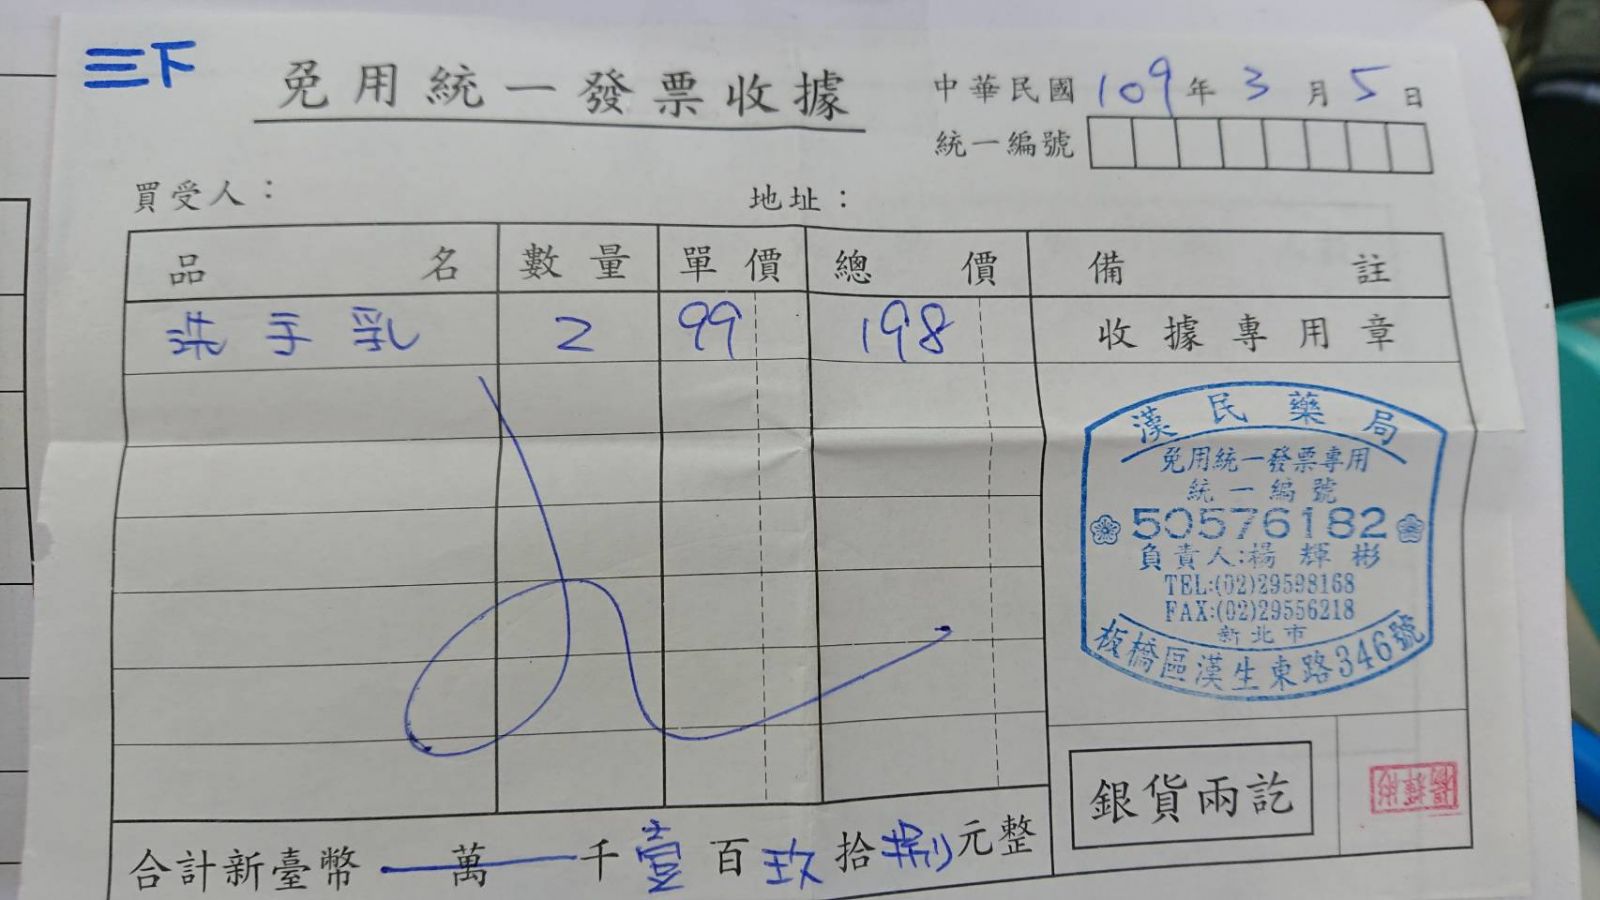 三下
免用統一發票收據
中華民國109年3月5日
統一編號
買受人： 地址：
品名 數量 單價 總價 備註
洗手乳 2 99 198 收據專用章
漢民藥局
免用統一發票專用
統一編號
50576182
負責人:楊輝彬
TEL:(02)29598168
FAX:(02)29556218
新北市
板橋區漢生東路346號
銀貨兩訖
合計新臺幣萬千壹百玖拾捌元整